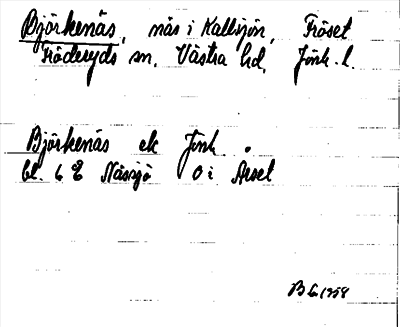 Björkenäs, näs i Kallsjön, Fröset
Fröderyds sn. Västra hd. Jönk. l.
Björkenäs ek Jönk
bl. 6 Nässjö O i Arset
B 1958